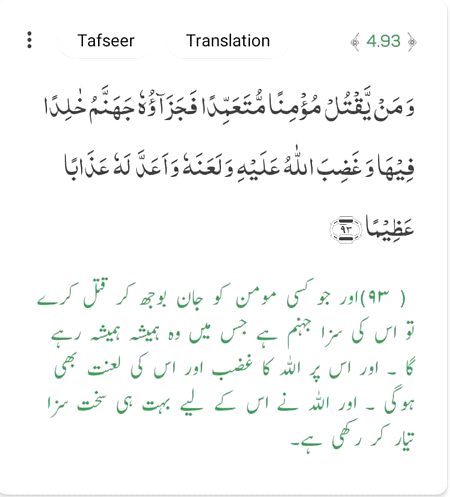 Tafseer Translation 4.93
وَمَنْ يَّقْتُلْ مُؤْمِنًا مُّتَعَمِّدًا فَجَزَآؤُهٗ جَهَنَّمُ خٰلِدًا
فِيْهَا وَغَضِبَ اللّٰهُ عَلَيْهِ وَلَعَنَهٗ وَاَعَدَّ لَهٗ عَذَابًا
عَظِيْمًا ۹۳
( ۹۳)اور جو کسی مومن کو جان بوجھ کر قتل کرے
تو اس کی سزا جہنم ہے جس میں وہ ہمیشہ ہمیشہ رہے
گا ۔ اور اس پر اللہ کا غضب اور اس کی لعنت بھی
ہوگی ۔ اور اللہ نے اس کے لیے بہت ہی سخت سزا
تیار کر رکھی ہے۔